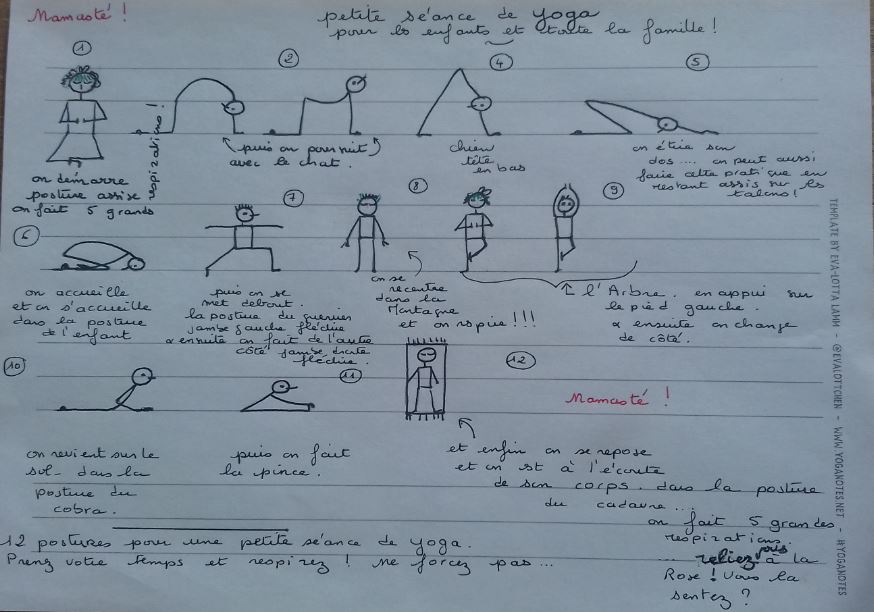 Mamasté !
petite séance de yoga
pour les enfants et toute la famille !
1
2
4
5
respirations !
on démarre
posture assise
on fait 5 grands
puis on poursuit
avec le chat .
chien
tête
en bas
on étire son
dos .... on peut aussi
faire cette pratique en
restant assis sur les
talons !
6
7
8
9
on accueille
et on s'accueille
dans la posture
de l'enfant
puis on se
met debout .
la posture du guerrier
jambe gauche fléchie
& ensuite on fait de l'autre
côté jambe droite
fléchie .
on se
recentre
dans la
Montagne
et on respire !!!
l'Arbre . en appui sur
le pied gauche .
& ensuite on change
de côté .
10
11
12
Mamasté !
on revient sur le
sol - dans la
posture du
cobra .
puis on fait
la pince .
et enfin on se repose
et on est à l'écoute
de son corps . dans la posture
du cadavre ...
on fait 5 grandes
respirations .
... reliez vous à la
Rose ! Vous la
sentez ?
12 postures pour une petite séance de yoga .
Prenez votre temps et respirez ! ne forcez pas ...
TEMPLATE BY EVA-LOTTA LAMM - @EVALOTTCHEN - WWW.YOGANOTES.NET - #YOGANOTES